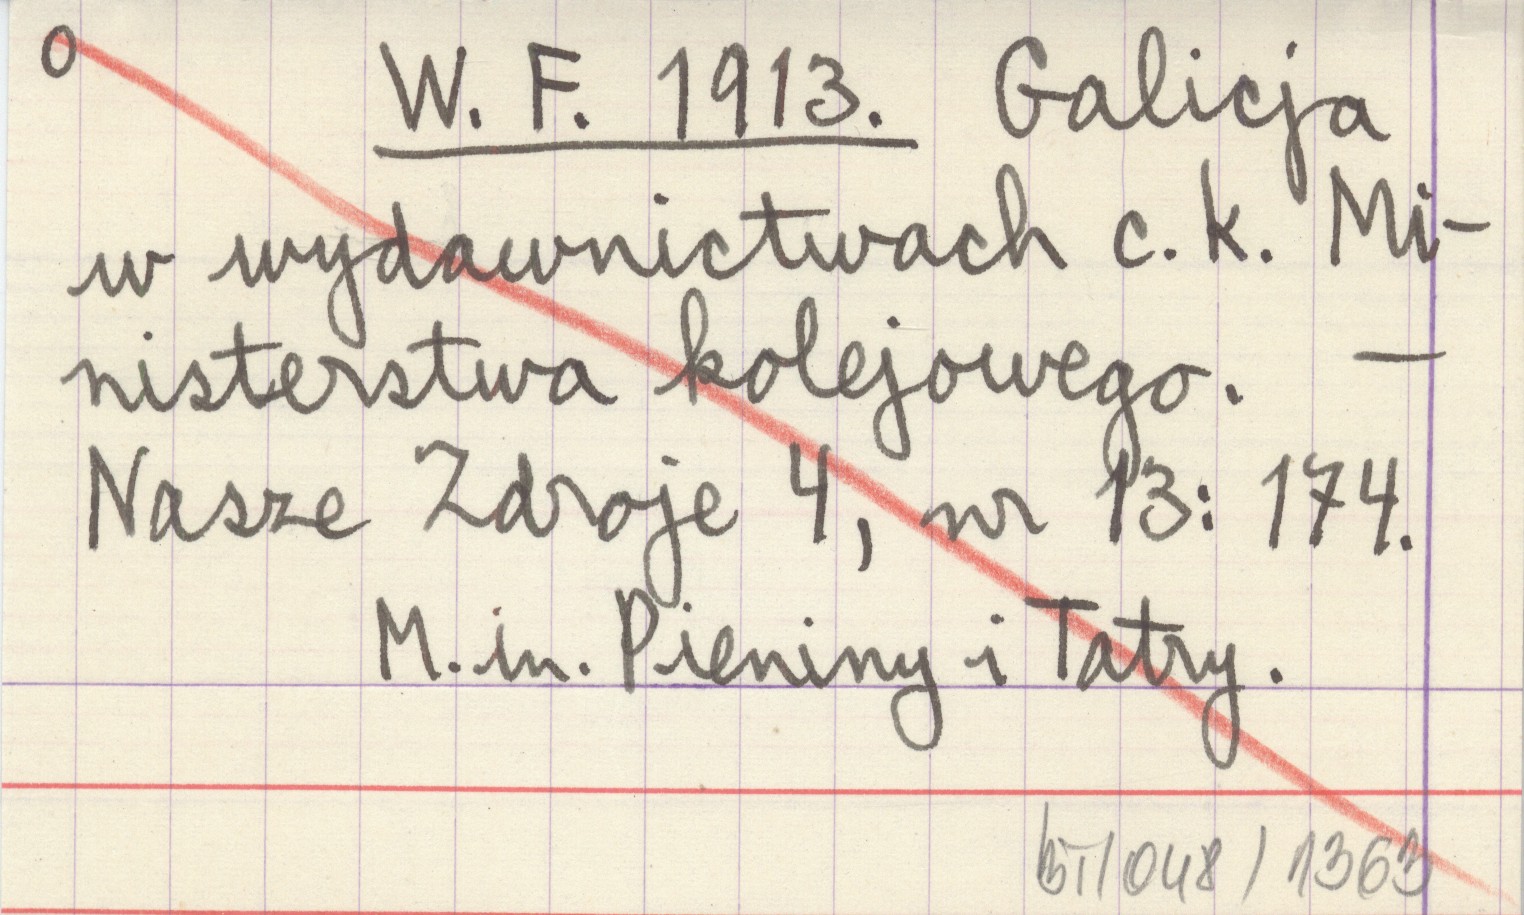 O W. F. 1913. Galicja
w wydawnictwach c. k. Mi-
nisterstwa kolejowego. —
Nasze Zdroje 4, nr 13: 174.
M. in. Pieniny i Tatry.
/ 048 / 1363